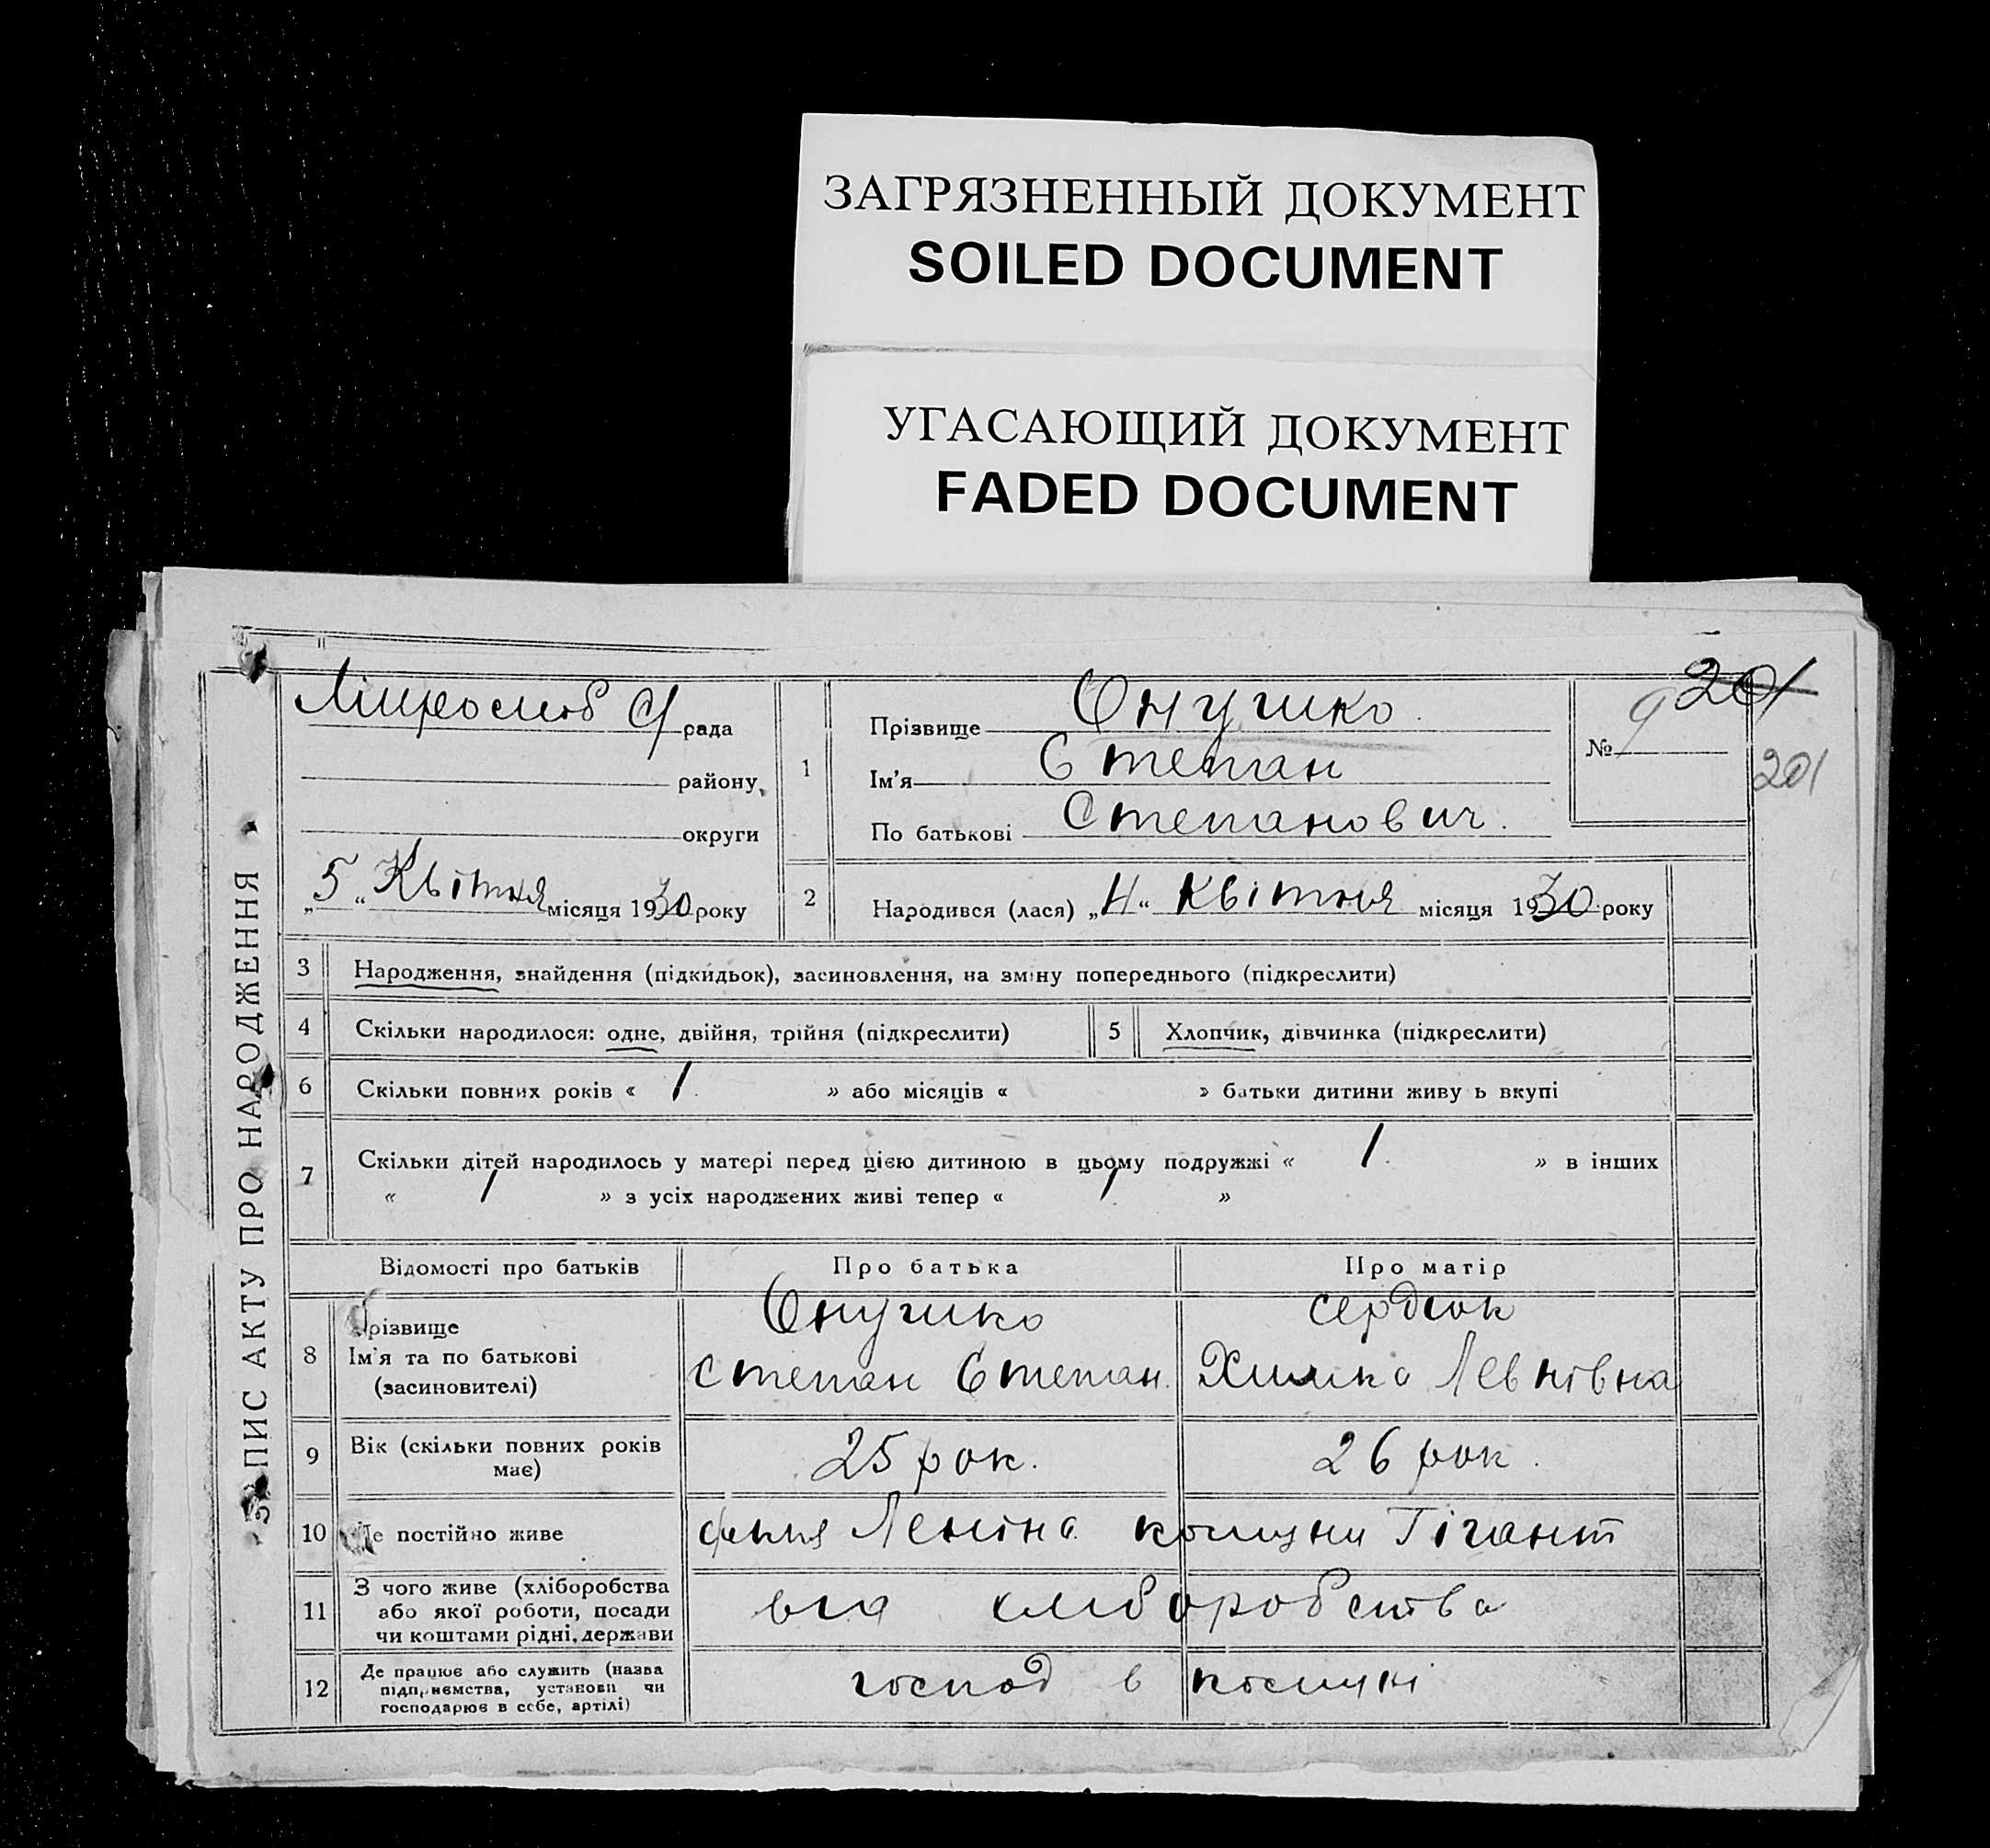 ЗАГРЯЗНЕННЫЙ ДОКУМЕНТ
SOILED DOCUMENT
УГАСАЮЩИЙ ДОКУМЕНТ
FADED DOCUMENT
ЗАПИС АКТУ ПРО НАРОДЖЕННЯ
рада
району
округи
„5“ Квітня місяця 1930 року
1
Прізвище Онушко
Ім’я Степан
По батькові Степанович.
№ 9
201
201
2 Народився (лася) „4“ Квітня місяця 1930 року
3 Народження, знайдення (підкидьок), засиновлення, на зміну попереднього (підкреслити)
4 Скільки народилося: одне, двійня, трійня (підкреслити) 5 Хлопчик, дівчинка (підкреслити)
6 Скільки повних років « 1 » або місяців « » батьки дитини живу ь вкупі
7 Скільки дітей народилось у матері перед цією дитиною в цьому подружжі « 1 » в інших
« / » з усіх народжених живі тепер « / »
Відомості про батьків Про батька Про матір
8 Прізвище
Ім’я та по батькові
(засиновителі)
Онушко
Степан Степан.
Сердюк
Химка Левківна
9 Вік (скільки повних років
має)
25 рок. 26 рок.
10 Де постійно живе Леніна комуни Гігант
11 З чого живе (хліборобства
або якої роботи, посади
чи коштами рідні, держави
від хліборобства
12 Де працює або служить (назва
підприємства, установи чи
господарює в себе, артілі)
господ в комуні